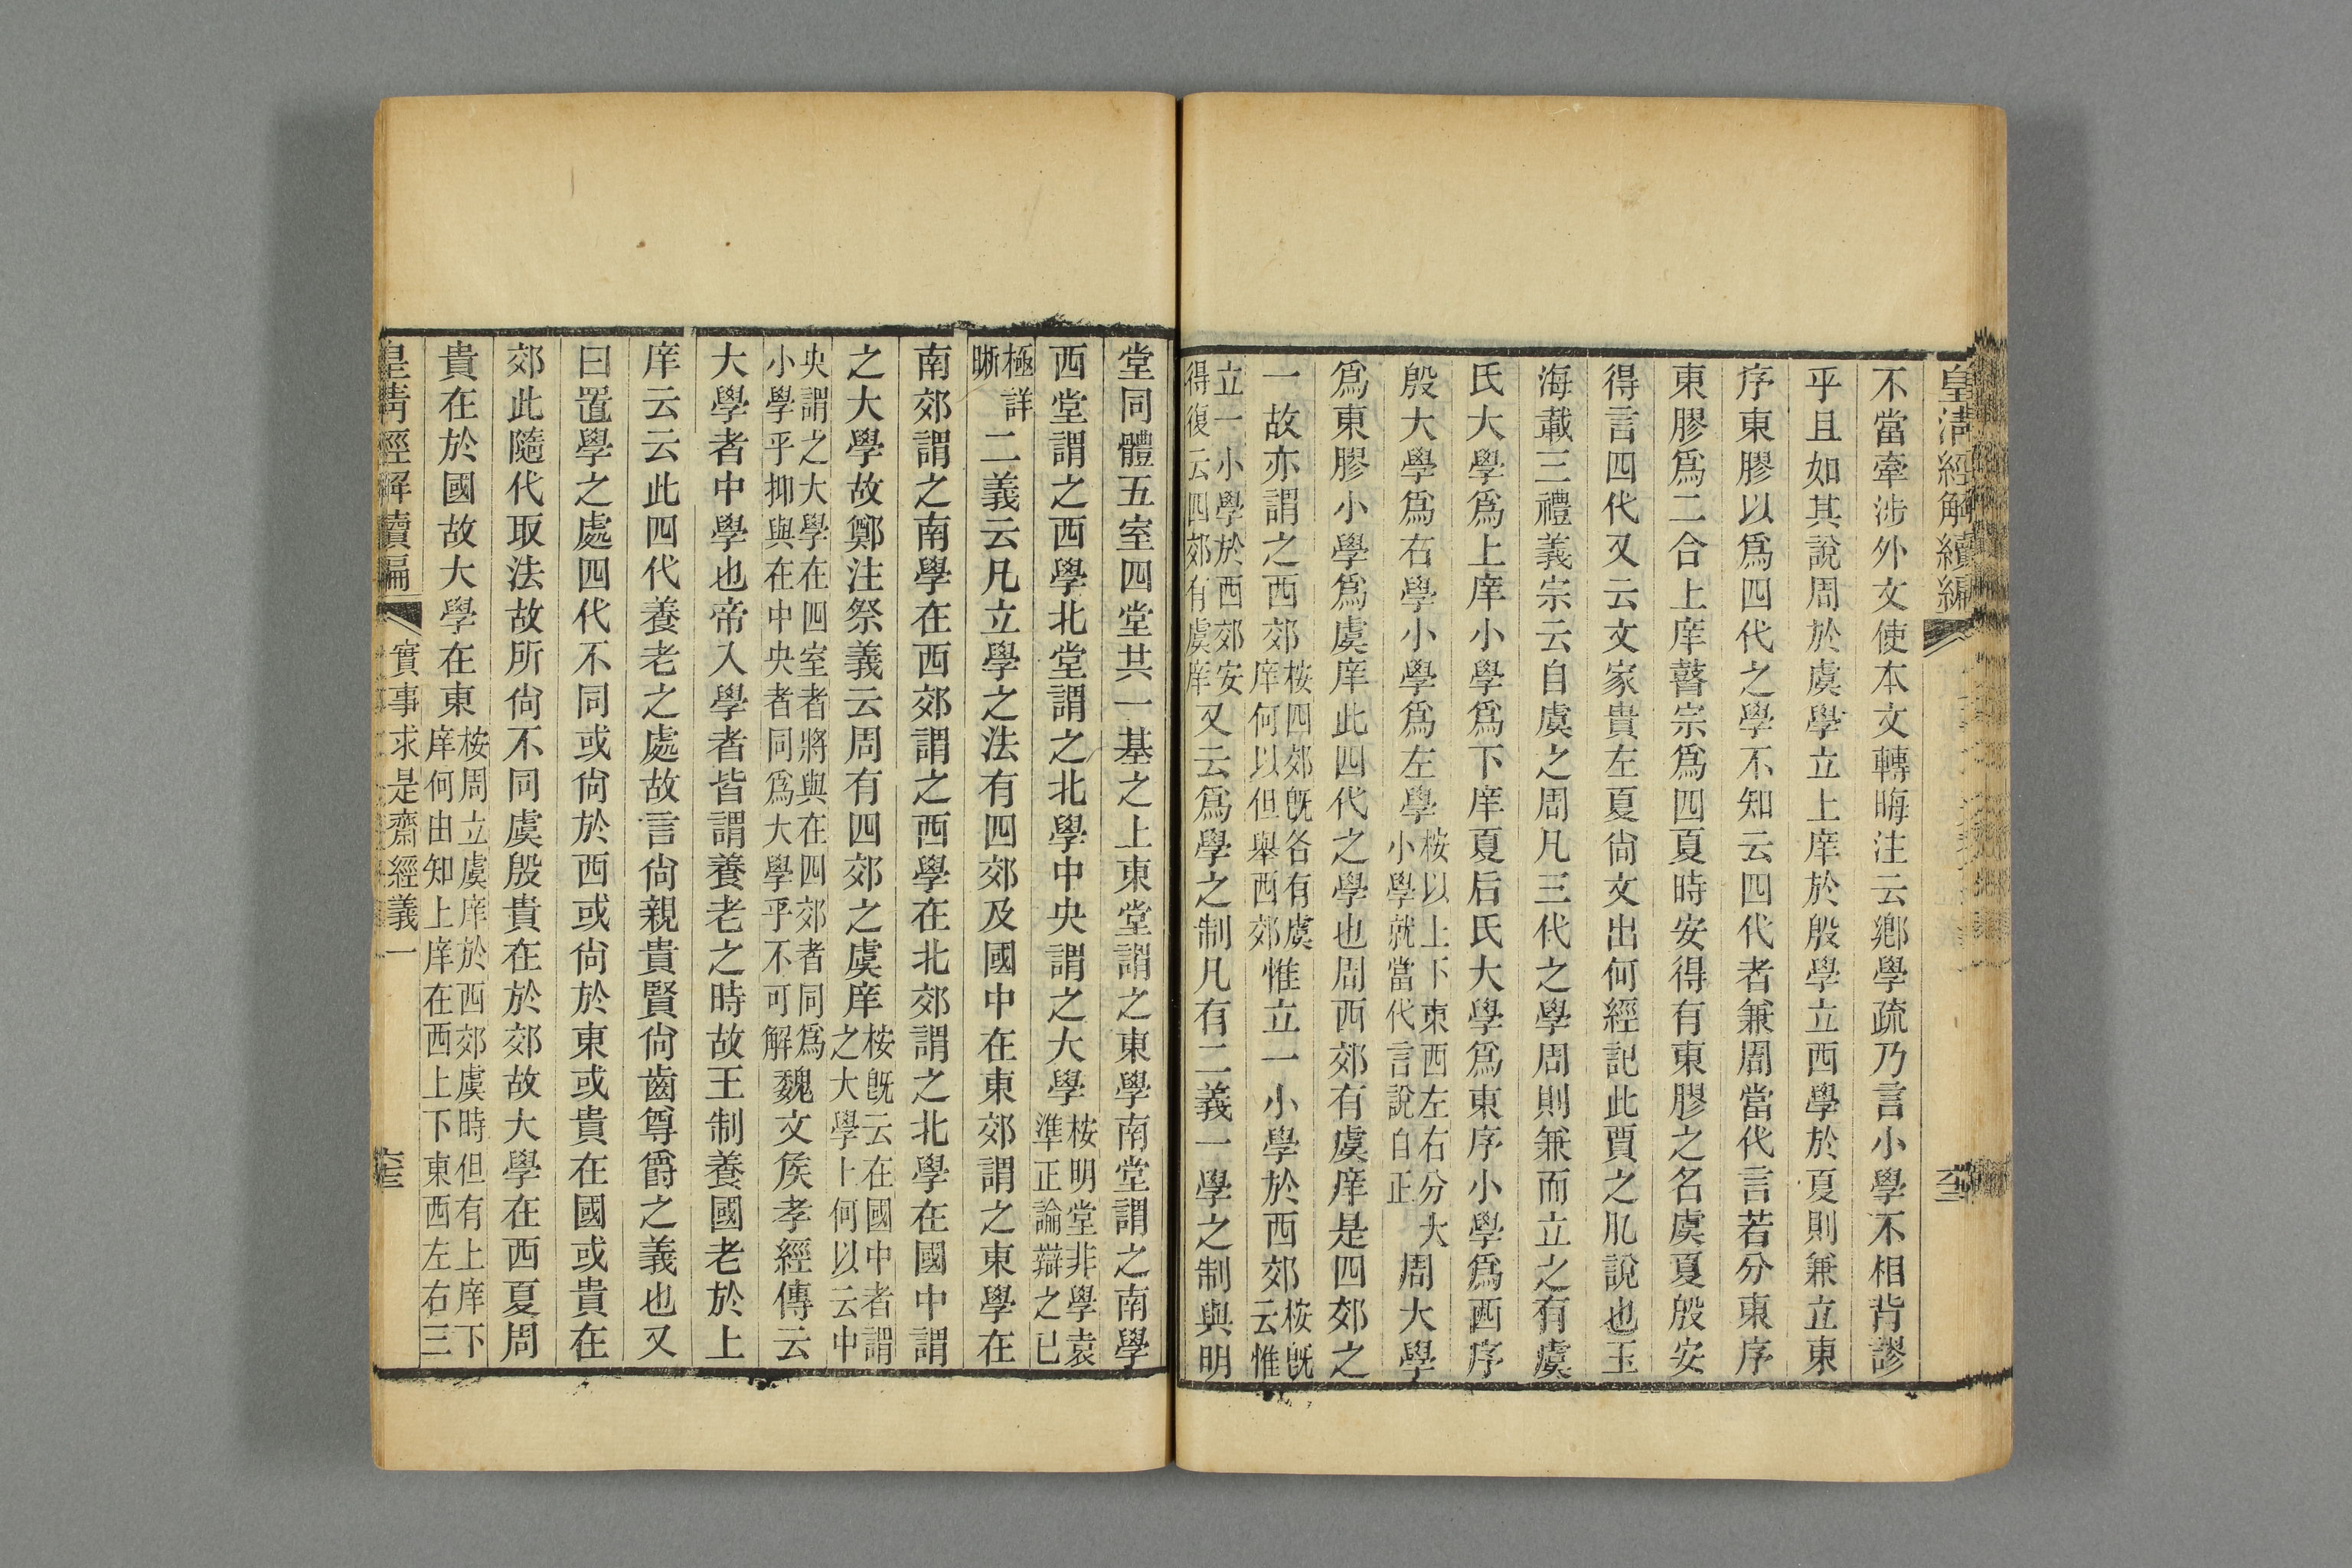 皇淸經解續編
不當牽涉外文使本文轉晦注云鄕學疏乃言小學不相背謬
乎且如其說周於虞學立上庠於殷學立西學於夏則兼立東
序東膠以爲四代之學不知云四代者兼周當代言若分東序
東膠爲二合上庠瞽宗爲四夏時安得有東膠之名虞夏殷安
得言四代又云文家貴左夏尙文出何經記此賈之肊說也玉
海載三禮義宗云自虞之周凡三代之學周則兼而立之有虞
氏大學爲上庠小學爲下庠夏后氏大學爲東序小學爲西序
殷大學爲右學小學爲左學桉以上下東西左右分大小學就當代言說自正周大學
爲東膠小學爲虞庠此四代之學也周西郊有虞庠是四郊之
一故亦謂之西郊桉四郊旣各有虞庠何以但舉西郊惟立一小學於西郊桉旣云惟
立一小學於西郊安得復云四郊有虞庠又云爲學之制凡有二義一學之制與明
堂同體五室四堂共一基之上東堂謂之東學南堂謂之南學
西堂謂之西學北堂謂之北學中央謂之大學桉明堂非學袁準正論辯之已
極詳晣二義云凡立學之法有四郊及國中在東郊謂之東學在
南郊謂之南學在西郊謂之西學在北郊謂之北學在國中謂
之大學故鄭注祭義云周有四郊之虞庠桉旣云在國中者謂之大學上何以云中
央謂之大學在四室者將與在四郊者同爲小學乎抑與在中央者同爲大學乎不可解魏文侯孝經傳云
大學者中學也帝入學者皆謂養老之時故王制養國老於上
庠云云此四代養老之處故言尙親貴賢尙齒尊爵之義也又
曰置學之處四代不同或尙於西或尙於東或貴在國或貴在
郊此隨代取法故所尙不同虞殷貴在於郊故大學在西夏周
貴在於國故大學在東桉周立虞庠於西郊虞時但有上庠下庠何由知上庠在西上下東西左右三
皇淸經解續編
實事求是齋經義一